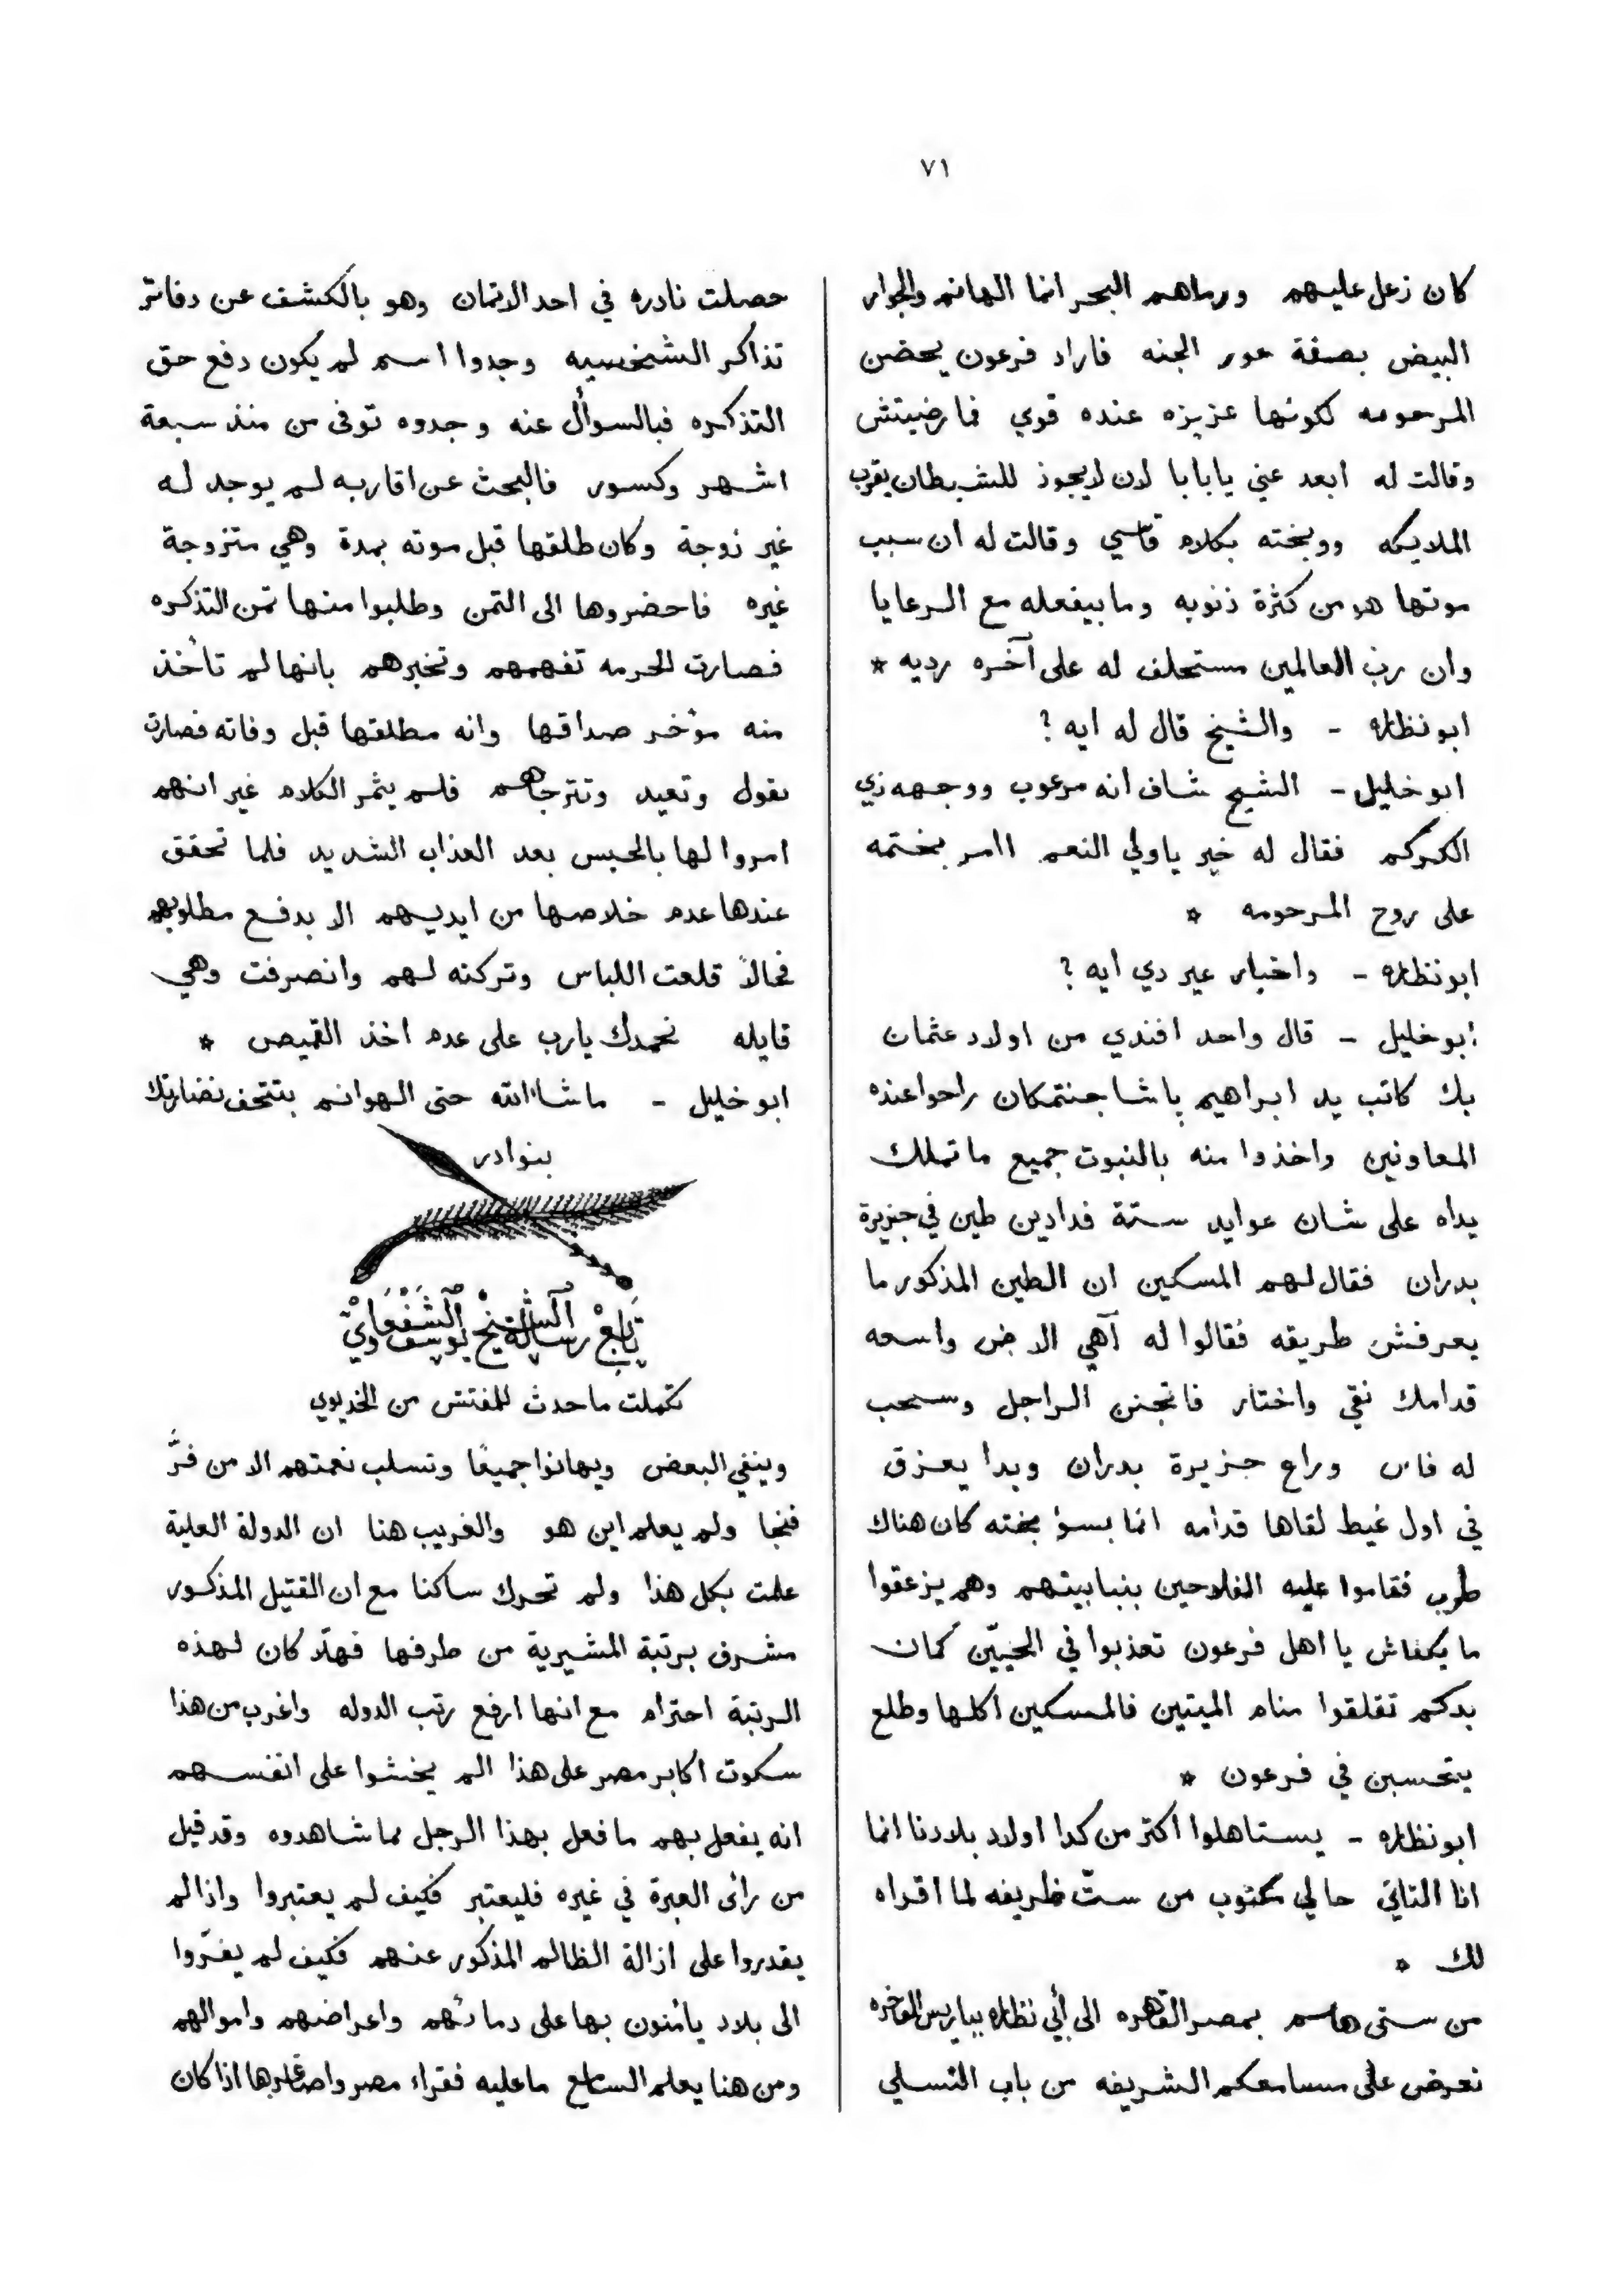 ٧١
كان زعل عليهم ورماهم البحر انما الهانم والجوار
البيض بصفة حور الجنه فاراد فرعون يحضن
المرحومه لكونها عزيزه عنده قوي فما رضيتش
وقالت له ابعد عني يا بابا لان لا يجوز للشيطان يقرب
الملايكه ووبخته بكلام قاسي وقالت له ان سبب
موتها هو من كثرة ذنوبه وما بيفعله مع الرعايا
وان رب العالمين مستحلف له على آخره رديه *
ابو نظاره - والشيخ قال له ايه ؟
ابو خليل - الشيخ شاف انه مرعوب ووجهه زي
الكركم فقال له خير يا ولي النعم اامر بختمه
على روح المرحومه *
ابو نظاره - واخبار غير دي ايه ؟
ابو خليل - قال واحد افندي من اولاد عثمان
بك كاتب يد ابراهيم پاشا جنتمكان راحوا عنده
المعاونين واخذوا منه بالنبوت جميع ما تملك
يداه على شان عوايد ستة فدادين طين في جزيرة
بدران فقال لهم المسكين ان الطين المذكور ما
يعرفش طريقه فقالوا له آهي الارض واسعه
قدامك نقي واختار فاتجنن الراجل وسحب
له فاس وراح جزيرة بدران وبدا يعزق
في اول غيط لقاها قدامه انما بسوء بخته كان هناك
طرب فقاموا عليه الفلاحين بنبابيتهم وهم يزعقوا
ما يكفاش يا اهل فرعون تعذبوا في الحيّين كمان
بدكم تقلقوا منام الميتين فالمسكين اكلها وطلع
يتحسبن في فرعون *
ابو نظاره - يستاهلوا اكتر من كدا اولاد بلادنا انما
انا التاني جا لي مكتوب من ستّ ظريفه لما اقراه
لك *
من ستى هانم بمصر القاهره الى أبي نظاره بباريس الفاخره
نعرض على مسامعكم الشريفه من باب التسلي
حصلت نادره في احد الاتمان وهو بالكشف عن دفاتر
تذاكر الشخصيه وجدوا اسم لم يكون دفع حق
التذكره فبالسوأل عنه وجدوه توفى من منذ سبعة
اشهر وكسور فالبحث عن اقاربه لم يوجد له
غير زوجة وكان طلقها قبل موته بمدة وهي متزوجة
غيره فاحضروها الى التمن وطلبوا منها ثمن التذكره
فصارت الحرمه تفهمهم وتخبرهم بانها لم تأخذ
منه مؤخر صداقها وانه مطلقها قبل وفاته فصارت
تقول وتعيد وتترجاهم فلم يثمر الكلام غير انهم
امروا لها بالحبس بعد العذاب الشديد فلما تحقق
عندها عدم خلاصها من ايديهم الا بدفع مطلوبهم
فحالاً قلعت اللباس وتركته لهم وانصرفت وهي
قايله نحمدك يارب على عدم اخذ القميص *
ابو خليل - ما شا الله حتى الهوانم بتتحف نضارتك
بنوادر
تابع رسالة الشيخ يوسف الشفعاوي
تكملت ما حدث للمفتش من الخديوي
وينفي البعض ويهانوا جميعًا وتسلب نعمتهم الا من فرَّ
فنجا ولم يعلم اين هو والغريب هنا ان الدولة العلية
علمت بكل هذا ولم تحرك ساكنا مع ان القتيل المذكور
مشرف برتبة المشيرية من طرفها فهلّا كان لهذه
الرتبة احترام مع انها ارفع رتب الدوله واغرب من هذا
سكوت اكابر مصر على هذا الم يخشوا على انفسهم
انه يفعل بهم ما فعل بهذا الرجل مما شاهدوه وقد قيل
من رأى العبرة في غيره فليعتبر فكيف لم يعتبروا واذا لم
يقدروا على ازالة الظالم المذكور عنهم فكيف لم يفرّوا
الى بلاد يأمنون بها على دمائهم واعراضهم واموالهم
ومن هنا يعلم السامع ما عليه فقراء مصر واصاغرها اذا كان